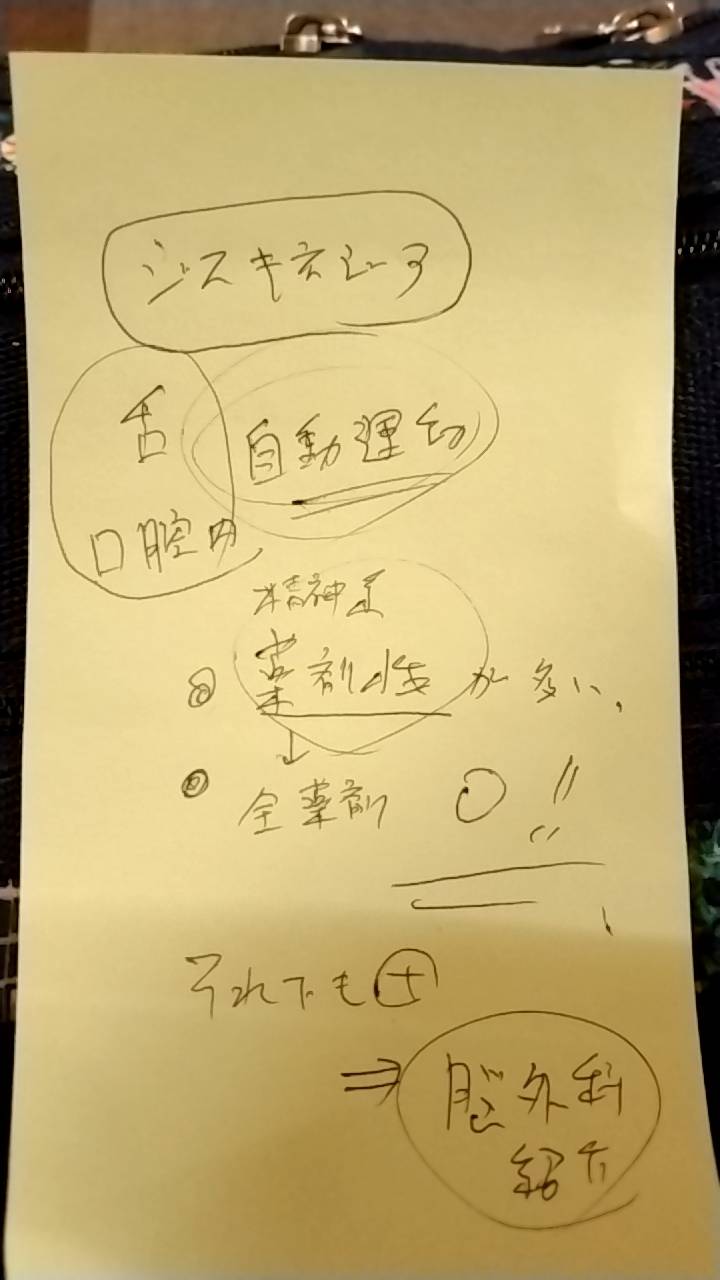 ジスキネジア
舌
自動運动
口腔内
精神
◎ 薬剤性が多い、
◎ 全薬剤 0!!
それでも⊕
⇒ 脳外科
紹介